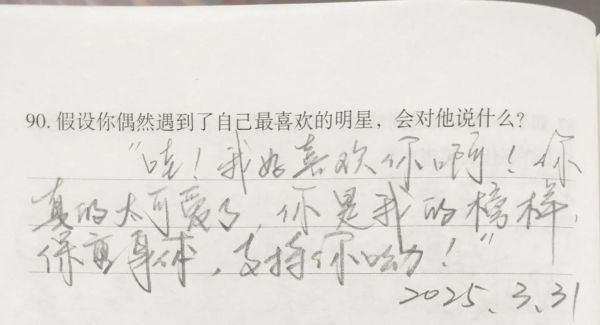 90. 假设你偶然遇到了自己最喜欢的明星，会对他说什么？
“哇！我好喜欢你啊！你
真的太可爱了，你是我的榜样，
保重身体，支持你呦！”
2025.3.31